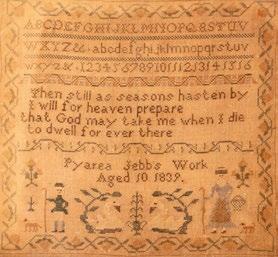 ABCDEFGHIJKLMNOPQRSTUV
WXYZ& abcdefghijklmnopqrstuv
wxyz& 12345678910111213141516
Then still as seasons hasten by
I will for heaven prepare
that God may take me when I die
to dwell for ever there
Pyarea Jebbs Work
Aged 10 1839.